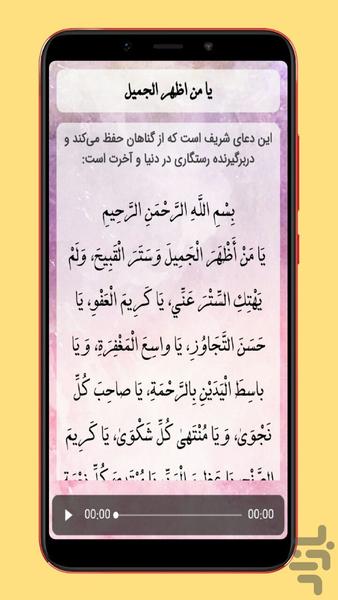 یا من اظهر الجمیل
این دعای شریف است که از گناهان حفظ می‌کند و
دربرگیرنده رستگاری در دنیا و آخرت است:
بِسْمِ اللَّهِ الرَّحْمَنِ الرَّحِيمِ
يَا مَنْ أَظْهَرَ الْجَمِيلَ وَسَتَرَ الْقَبِيحَ، وَلَمْ
يَهْتِكِ السِّتْرَ عَنِّي، يَا كَرِيمَ الْعَفْوِ، يَا
حَسَنَ التَّجَاوُزِ، يَا وَاسِعَ الْمَغْفِرَةِ، وَ يَا
بَاسِطَ الْيَدَيْنِ بِالرَّحْمَةِ، يَا صَاحِبَ كُلِّ
نَجْوَى، وَ يَا مُنْتَهَىٰ كُلِّ شَكْوَى، يَا كَرِيمَ
الصَّفْحِ يَا عَظِيمَ الْمَنِّ يَا مُبْتَدِئَ كُلِّ نِعْمَةٍ
00:00 00:00
بازار